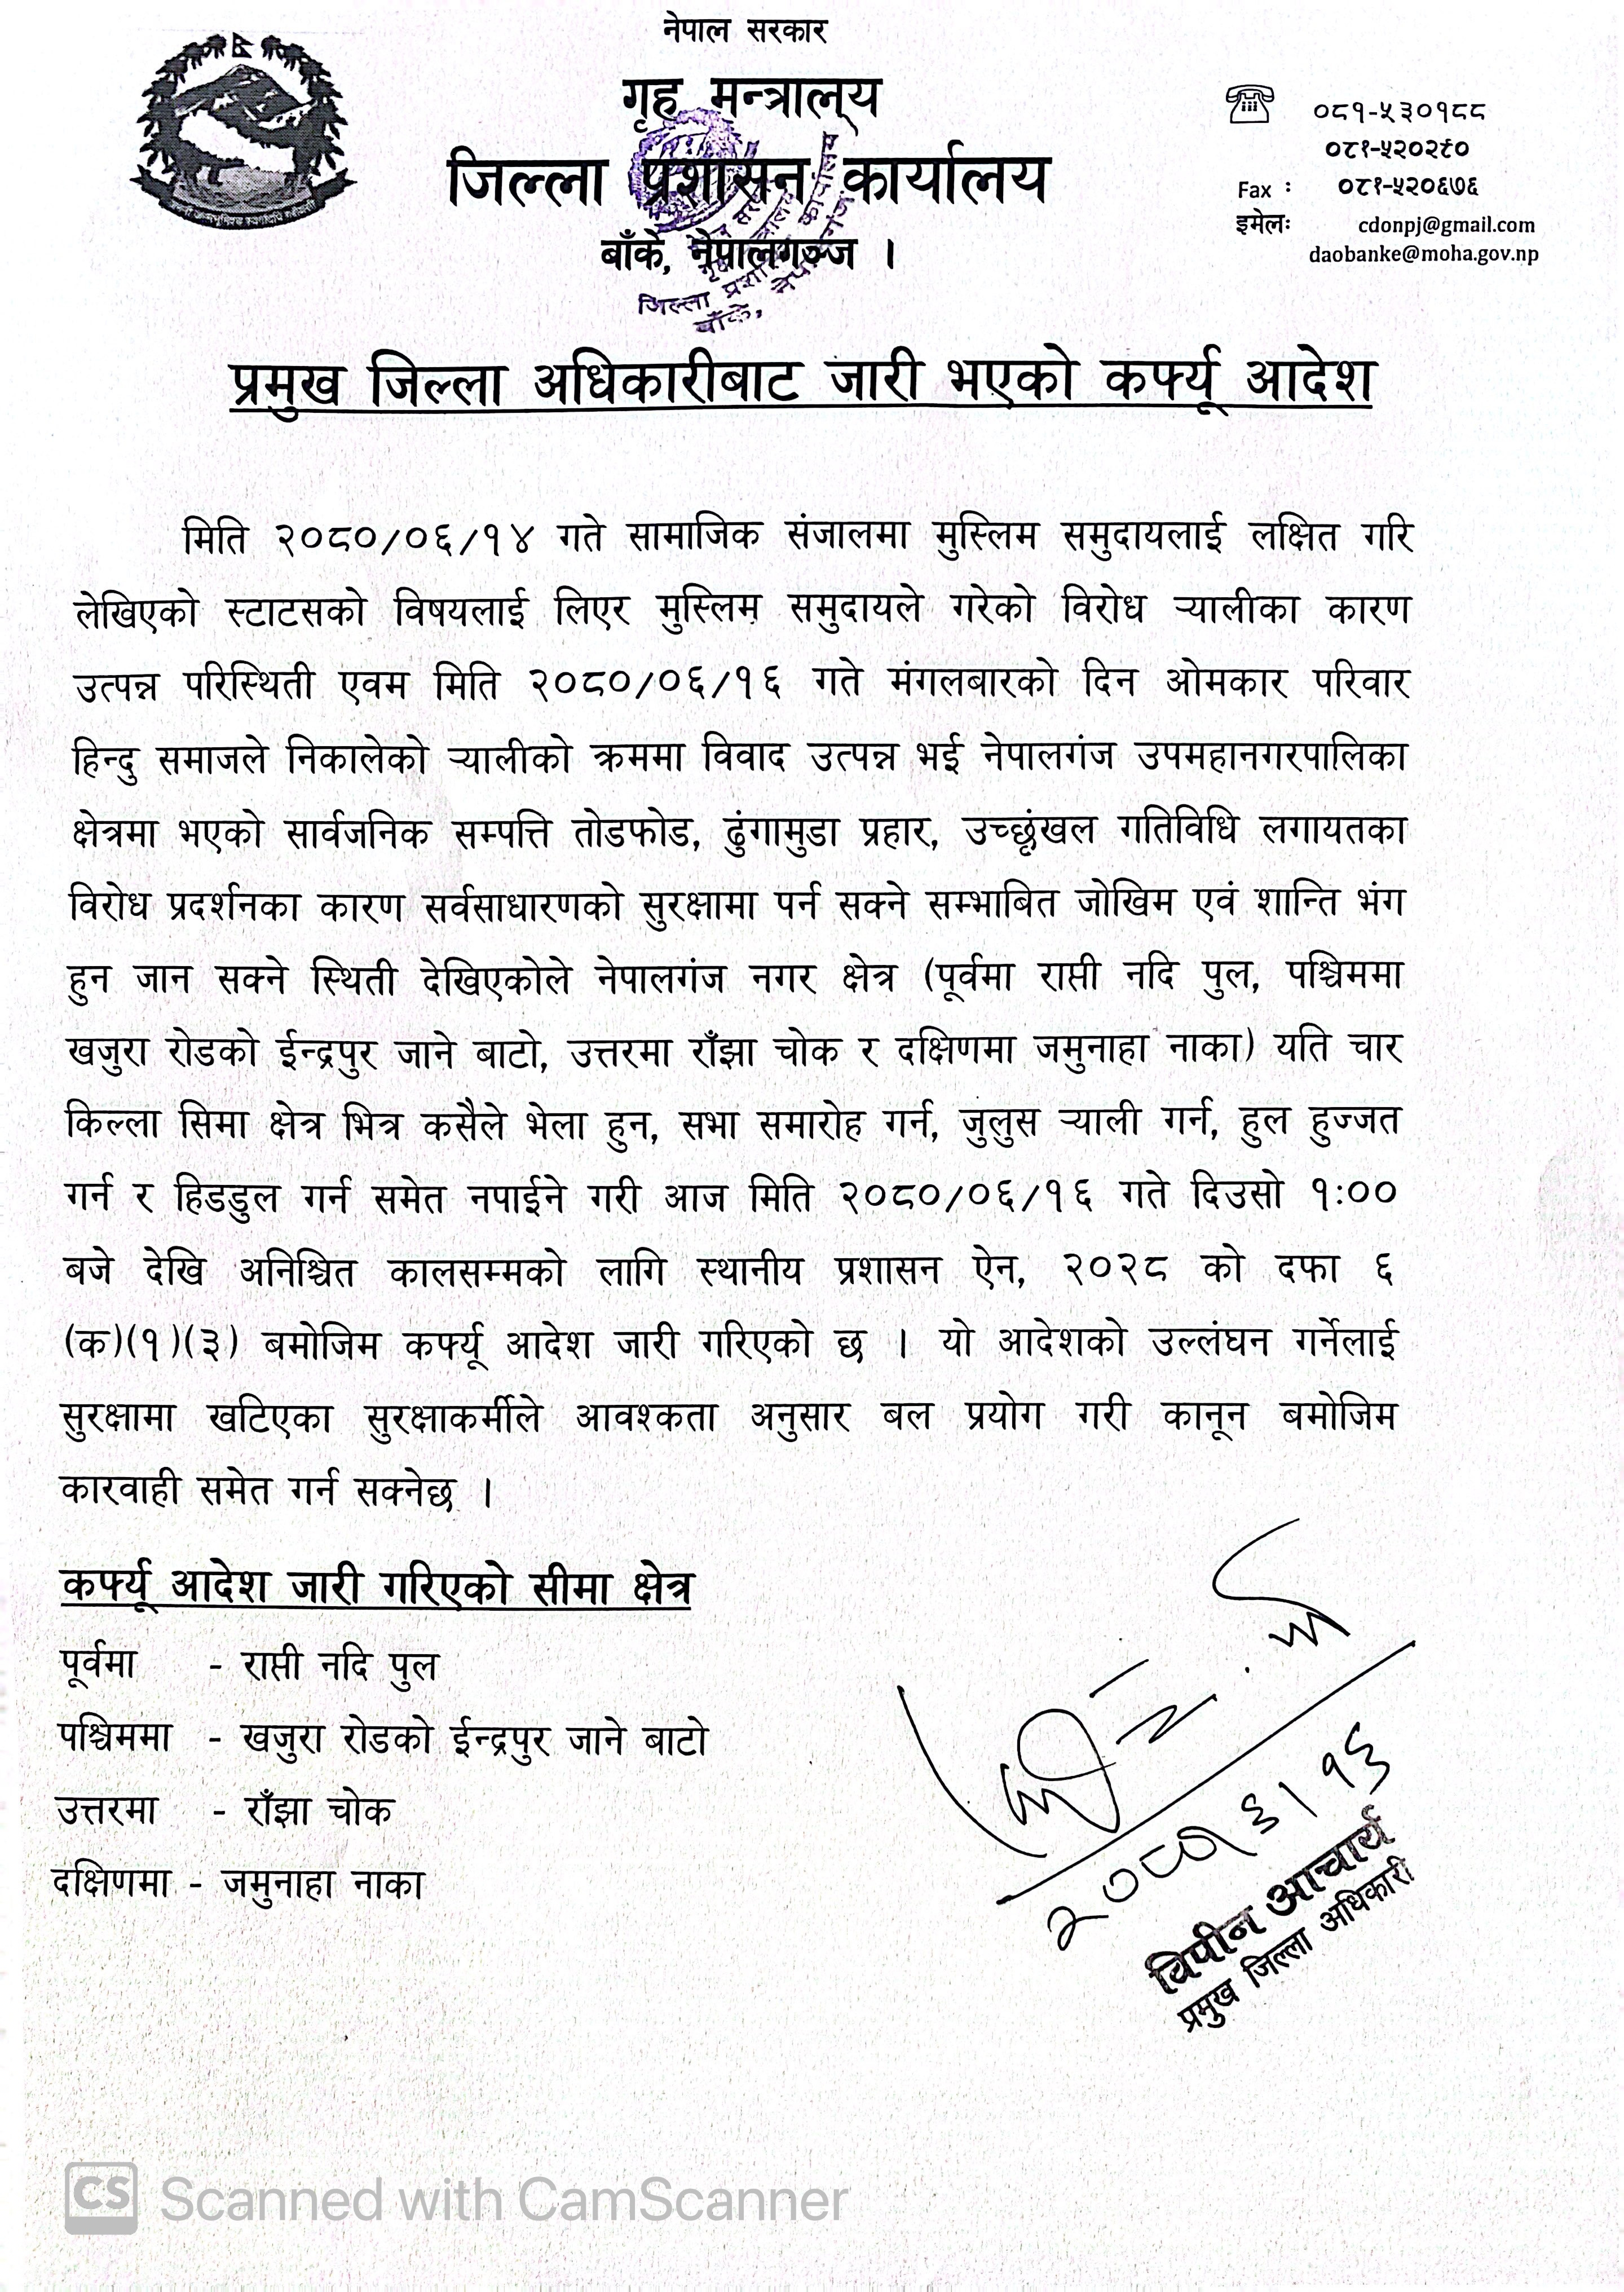 नेपाल सरकार
गृह मन्त्रालय
जिल्ला प्रशासन कार्यालय
बाँके, नेपालगञ्ज ।
०८१-५३०१८८
०८१-५२०२९०
Fax : ०८१-५२०६७६
इमेलः cdonpj@gmail.com
daobanke@moha.gov.np
जिल्ला प्रशासन कार्यालय
बाँके,
प्रमुख जिल्ला अधिकारीबाट जारी भएको कर्फ्यू आदेश
मिति २०८०/०६/१४ गते सामाजिक संजालमा मुस्लिम समुदायलाई लक्षित गरि
लेखिएको स्टाटसको विषयलाई लिएर मुस्लिम समुदायले गरेको विरोध र्‍यालीका कारण
उत्पन्न परिस्थिती एवम मिति २०८०/०६/१६ गते मंगलबारको दिन ओमकार परिवार
हिन्दु समाजले निकालेको र्‍यालीको क्रममा विवाद उत्पन्न भई नेपालगंज उपमहानगरपालिका
क्षेत्रमा भएको सार्वजनिक सम्पत्ति तोडफोड, ढुंगामुडा प्रहार, उच्छृंखल गतिविधि लगायतका
विरोध प्रदर्शनका कारण सर्वसाधारणको सुरक्षामा पर्न सक्ने सम्भाबित जोखिम एवं शान्ति भंग
हुन जान सक्ने स्थिती देखिएकोले नेपालगंज नगर क्षेत्र (पूर्वमा राप्ती नदि पुल, पश्चिममा
खजुरा रोडको ईन्द्रपुर जाने बाटो, उत्तरमा राँझा चोक र दक्षिणमा जमुनाहा नाका) यति चार
किल्ला सिमा क्षेत्र भित्र कसैले भेला हुन, सभा समारोह गर्न, जुलुस र्‍याली गर्न, हुल हुज्जत
गर्न र हिडडुल गर्न समेत नपाईने गरी आज मिति २०८०/०६/१६ गते दिउसो १:००
बजे देखि अनिश्चित कालसम्मको लागि स्थानीय प्रशासन ऐन, २०२८ को दफा ६
(क)(१)(३) बमोजिम कर्फ्यू आदेश जारी गरिएको छ । यो आदेशको उल्लंघन गर्नेलाई
सुरक्षामा खटिएका सुरक्षाकर्मीले आवश्कता अनुसार बल प्रयोग गरी कानून बमोजिम
कारवाही समेत गर्न सक्नेछ ।
कर्फ्यू आदेश जारी गरिएको सीमा क्षेत्र
पूर्वमा - राप्ती नदि पुल
पश्चिममा - खजुरा रोडको ईन्द्रपुर जाने बाटो
उत्तरमा - राँझा चोक
दक्षिणमा - जमुनाहा नाका
विपीन आचार्य
प्रमुख जिल्ला अधिकारी
CS Scanned with CamScanner